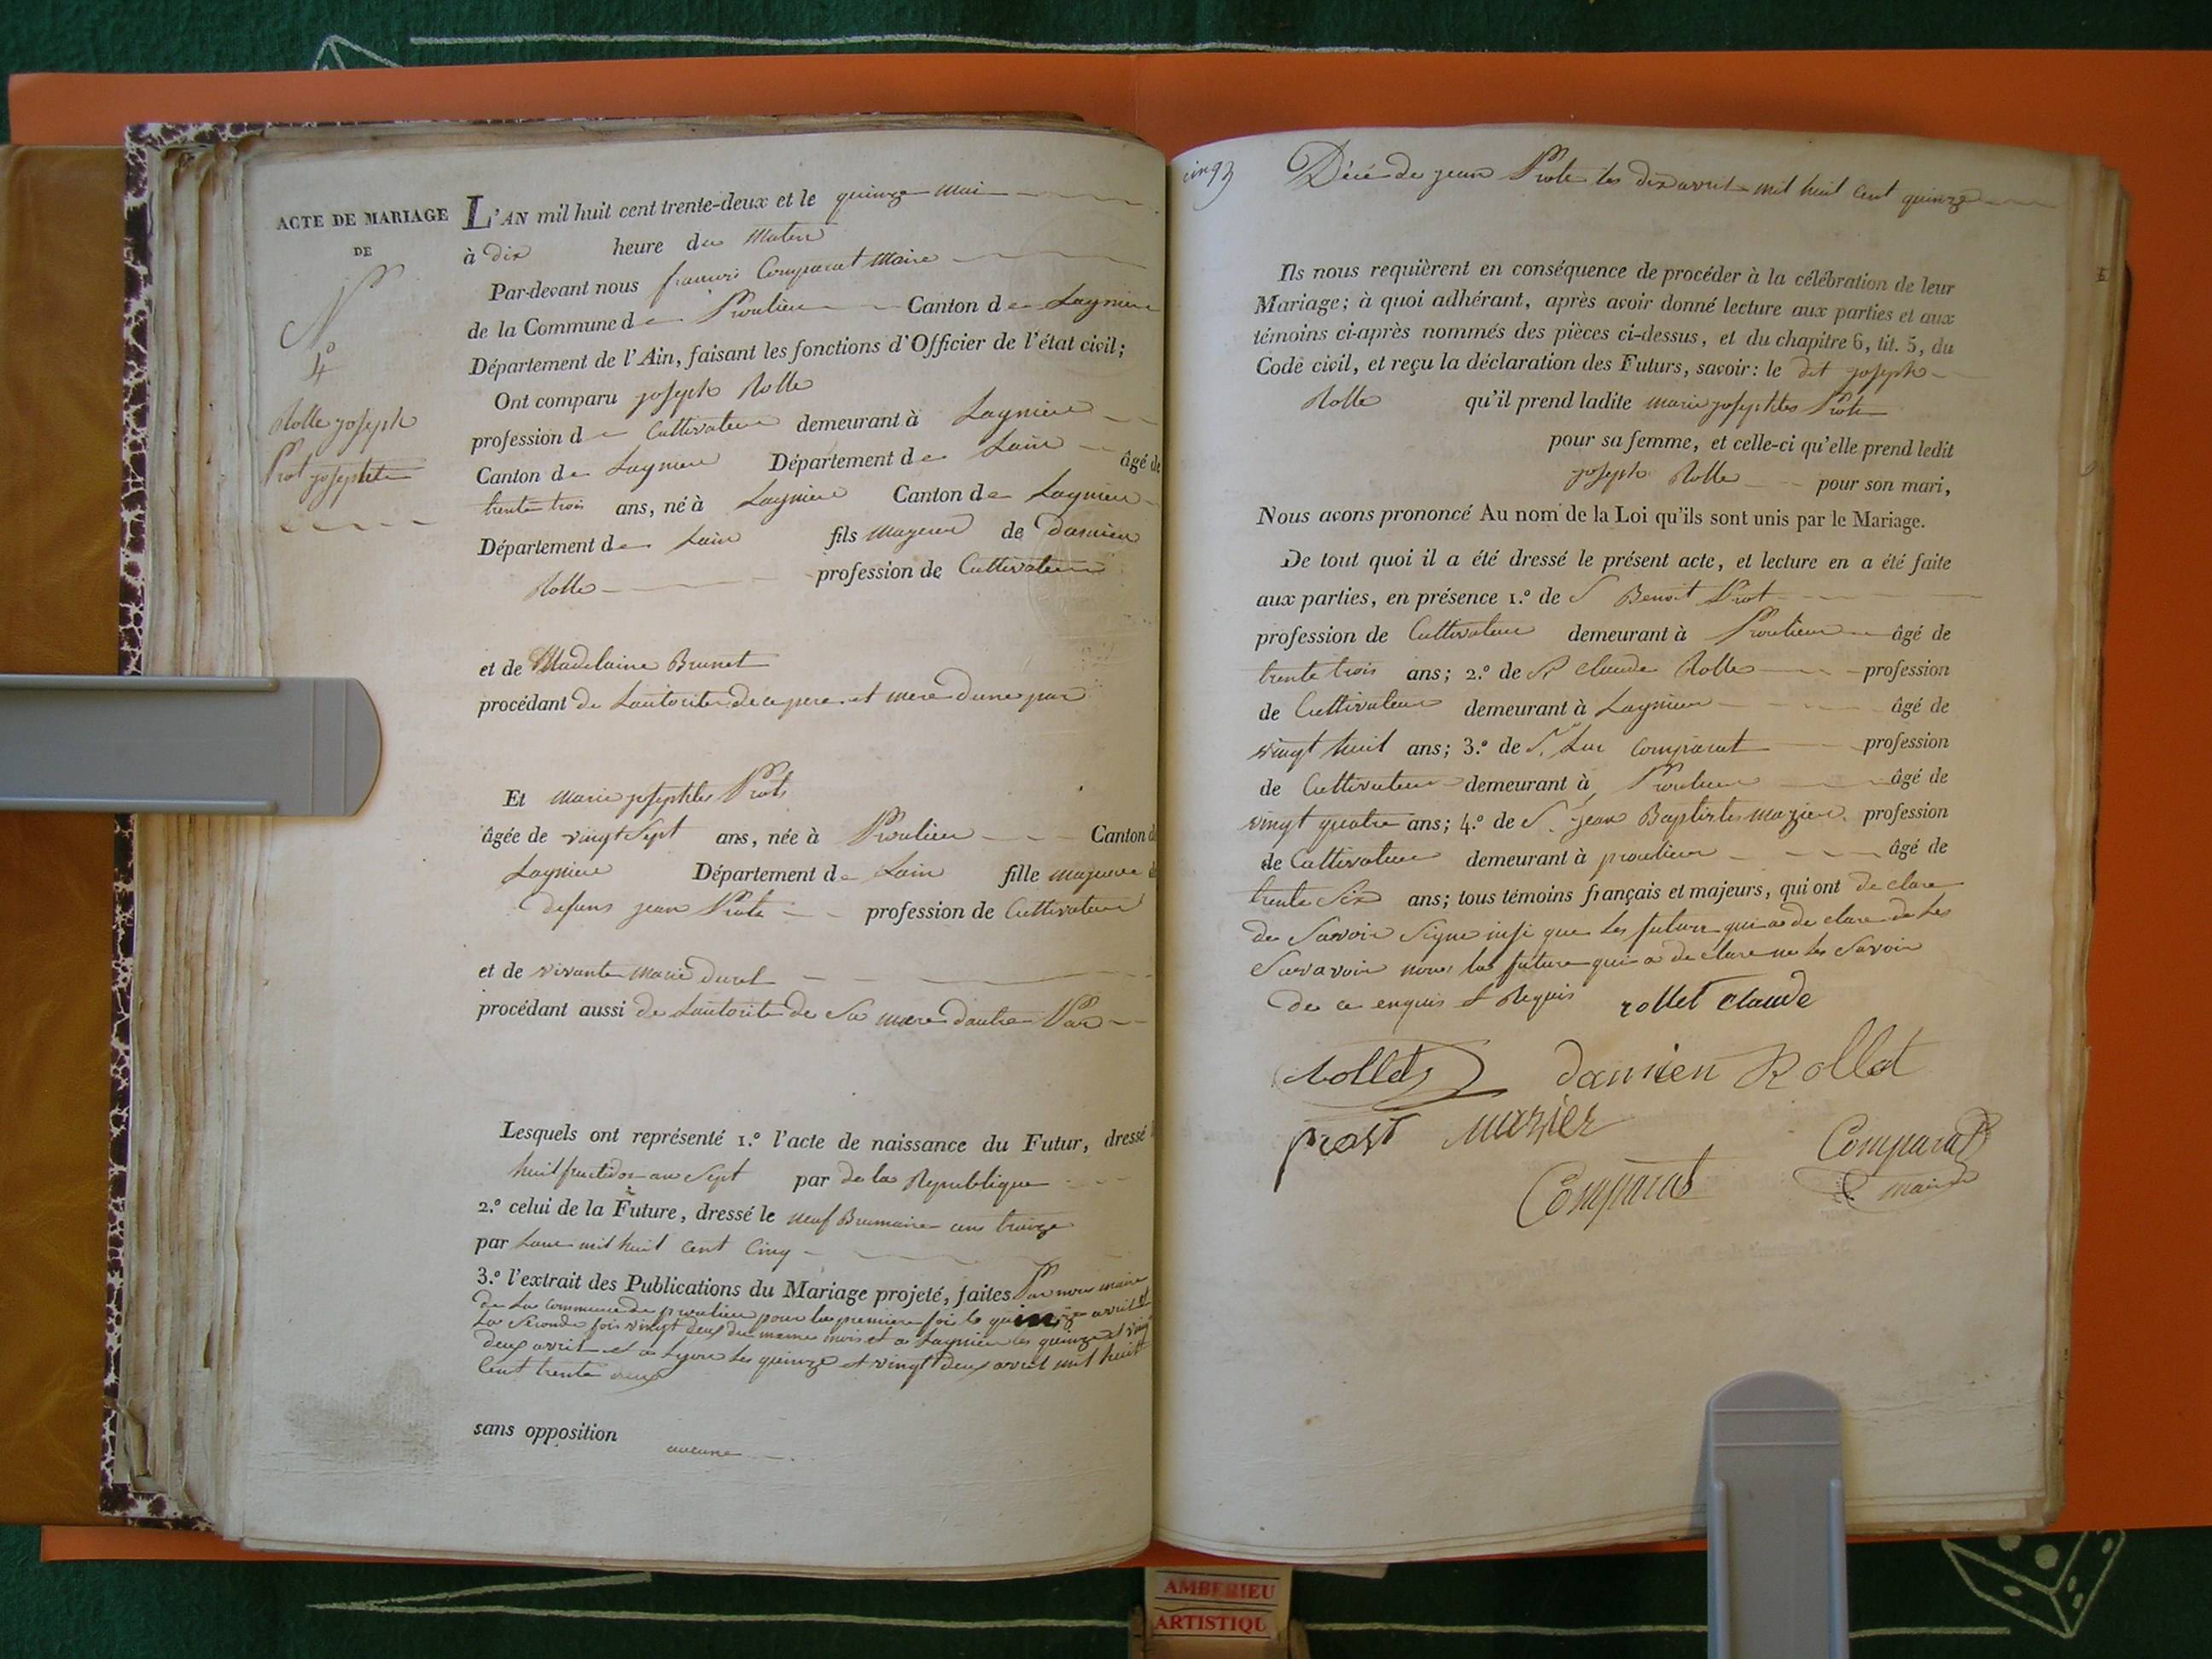 ACTE DE MARIAGE
DE
N
4°
Rolle joseph
Prot josephte
L'AN mil huit cent trente-deux et le quinze mai
à dix heure du matin
Par-devant nous francois Comparat Maire
de la Commune de Proulieu Canton de Lagnieu
Département de l'Ain, faisant les fonctions d'Officier de l'état civil;
Ont comparu joseph Rolle
profession de Cultivateur demeurant à Lagnieu
Canton de Lagnieu Département de Lain âgé de
trente trois ans, né à Lagnieu Canton de Lagnieu
Département de Lain fils majeur de Damien
Rolle profession de Cultivateur
et de Madelaine Brunet
procédant de Lautorite de ce pere et mere dune par
Et marie josephtes Prote
âgée de vingt Sept ans, née à Proulieu Canton d
Lagnieu Département de Lain fille majeure d
defuns jean Prote profession de Cultivateur
et de vivante marie durel
procédant aussi de Lautorite de Sa mere dautre Par
Lesquels ont représenté 1.° l'acte de naissance du Futur, dressé
huit fructidor an Sept par de la Republique
2.° celui de la Future, dressé le neuf Brumaire ans treize
par Lane mil huit Cent Cinq
3.° l'extrait des Publications du Mariage projeté, faites Par nous maire
de La Commune de proulieu pour la premiere fois le quinze avril et
La Seconde fois vingt deux du meme mois et a Lagnieu les quinze et ving
deux avril et a Lyon Les quinze et vingt deux avril mil huit
Cent trente deux
sans opposition aucune
cinq
Décé de jean Prote les dix avril mil huit Cent quinze
Ils nous requièrent en conséquence de procéder à la célébration de leur
Mariage; à quoi adhérant, après avoir donné lecture aux parties et aux
témoins ci-après nommés des pièces ci-dessus, et du chapitre 6, tit. 5, du
Code civil, et reçu la déclaration des Futurs, savoir: le dit joseph
Rolle qu'il prend ladite marie josephtes Prote
pour sa femme, et celle-ci qu'elle prend ledit
joseph Rolle pour son mari,
Nous avons prononcé Au nom de la Loi qu'ils sont unis par le Mariage.
De tout quoi il a été dressé le présent acte, et lecture en a été faite
aux parties, en présence 1.° de S Benoit Prot
profession de Cultivateur demeurant à Proulieu âgé de
trente trois ans; 2.° de Sr Claude Rolle profession
de Cultivateur demeurant à Lagnieu âgé de
vingt huit ans; 3.° de Sr Luc Comparat profession
de Cultivateur demeurant à Proulieu âgé de
vingt quatre ans; 4.° de Sr jean Baptistes mazier profession
de Cultivateur demeurant à proulieu âgé de
trente Six ans; tous témoins français et majeurs, qui ont declare
de Savoir Signe insi que Les future qui a declare de Les
Savavoir nons la future qui a declare ne Les Savoir
de ce enquis et Requis rollet claude
Rollet damien Rollet
prost mazier
Comparat
Comparat
maire
AMBERIEU
ARTISTIQU